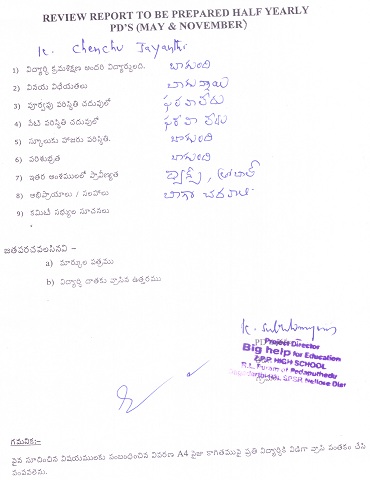 REVIEW REPORT TO BE PREPARED HALF YEARLY
PD'S (MAY & NOVEMBER)
K. Chenchu Jayanthi
1) విద్యార్థి క్రమశిక్షణ ఇందరి విద్యార్థులది. బాగుంది
2) వినయ విధేయతలు బాగున్నాయి
3) పూర్వపు పరిస్థితి చదువులో ఫరవాలేదు
4) నేటి పరిస్థితి చదువులో ఫరవాలేదు
5) స్కూలుకు హాజరు పరిస్థితి. బాగుంది
6) పరిశుభ్రత బాగుంది
7) ఇతర అంశములలో ప్రావీణ్యత
8) అభిప్రాయాలు / సలహాలు బాగా చదవాలి
9) కమిటీ సభ్యుల సూచనలు
జతపరచవలసినవి –
a) మార్కుల పత్రము
b) విద్యార్థి దాతకు వ్రాసిన ఉత్తరము
PD
Project Director
Big help for Education
Z.P.P. HIGH SCHOOL
SPSR Nellore Dist
గమనిక:–
పైన సూచించిన విషయములకు సంబంధించిన వివరణ A4 సైజు కాగితముపై ప్రతి విద్యార్థికి విడిగా వ్రాసి సంతకం చేసి
పంపవలెను.